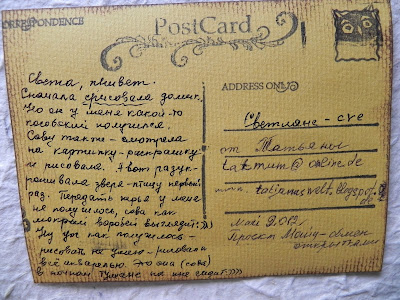 CORRESPONDENCE
PostCard
ADDRESS ONLY
Света, привет.
Сначала срисовала домик,
Что он у меня какой-то
косовский получился.
Сову также - смотрела
на картинку-раскраску
и рисовала. А вот разук-
рашивала зверя-птицу первый
раз. Передать перья у меня
не получилось, сова как
мокрый воробей выглядит:)))
Ну уж как получилось
рисовать не умею - рисовала
всё акварелью. Это она (сова)
в ночном тумане на пне сидит:)))
Светлане - cve
от Татьяны
taktum@online.de
tatjanaswelt.blogspot.
de
Май 2012
Проект Майл-обмен
открытками